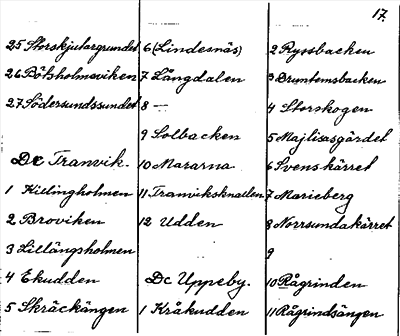 17.
25 Storskjutargrundet
26 Båtsholmsviken
27 Södersundssundet
Dc Tranvik.
1 Killingholmen
2 Broviken
3 Lillängsholmen
4 Ekudden
5 Skräckängen
6 (Lindesnäs)
7 Långdalen
8 —
9 Solbacken
10 Mararna
11 Tranviksknallen
12 Udden
Dc Uppeby.
1 Kråkudden
2 Ryssbacken
3 Bruntomsbacken
4 Storskogen
5 Majlisasgärdet
6 Svenskärret
7 Marieberg
8 Norrsundakärret
9
10 Rågrinden
11 Rågrindsängen